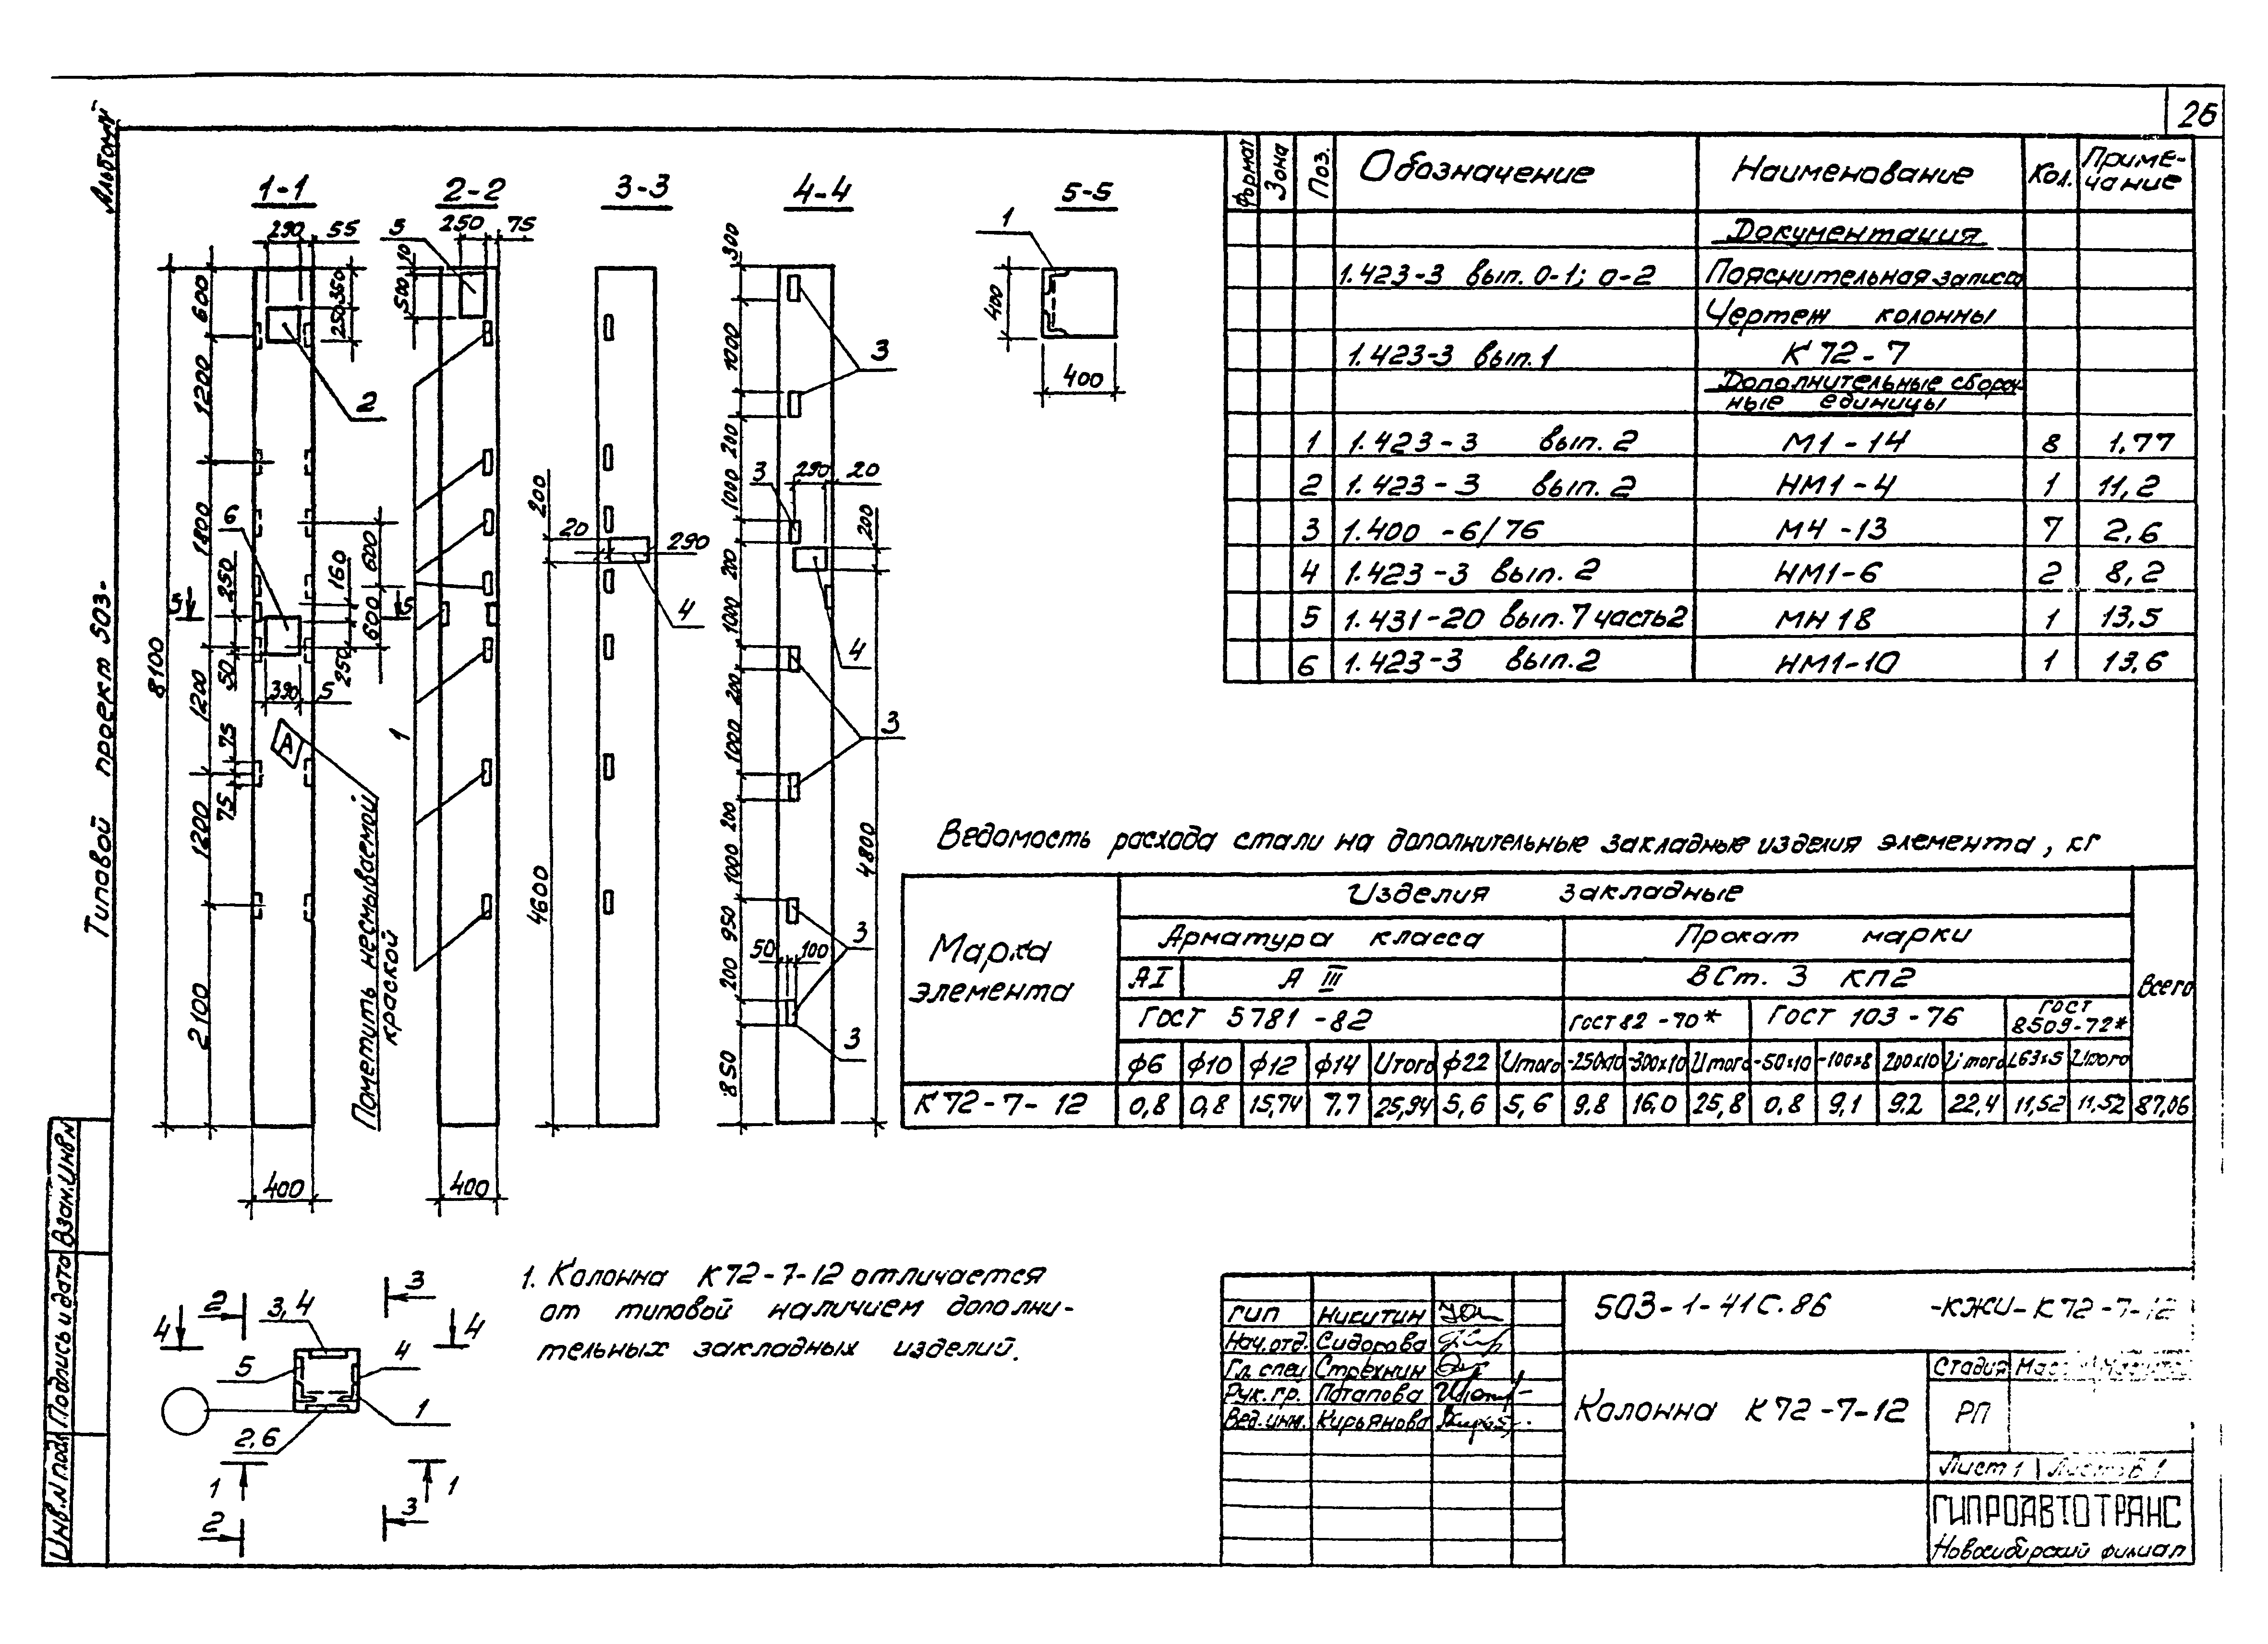 26
Альбом
Типовой проект 503-
1-1
2-2
3-3
4-4
5-5
290 55
600
1200
1800
1200
1200
2100
8100
350
250
2
6
250
50
160
600
600
250
390 5
5
5
75
75
А
400
Пометить несмываемой
краской
5
250 75
10
500
1
400
200
20
290
4
4600
300
1000
200
1000
200
1000
200
1000
200
1000
950
200
850
3
3
290 20
200
4
3
3
50 100
3
4800
1
400
400
Формат Зона Поз. Обозначение Наименование Кол. Приме-
чание
Документация
1.423-3 вып. 0-1; 0-2 Пояснительная записка
Чертеж колонны
1.423-3 вып.1 К 72-7
Дополнительные сбороч-
ные единицы
1 1.423-3 вып. 2 М1-14 8 1,77
2 1.423-3 вып. 2 НМ1-4 1 11,2
3 1.400-6/76 М4-13 7 2,6
4 1.423-3 вып. 2 НМ1-6 2 8,2
5 1.431-20 вып. 7 часть 2 МН 18 1 13,5
6 1.423-3 вып. 2 НМ1-10 1 13,6
Ведомость расхода стали на дополнительные закладные изделия элемента, кг
Марка
элемента
Изделия закладные
Арматура класса Прокат марки
АI А III ВСт. 3 КП2
Всего
Гост 5781-82 Гост 82-70* Гост 103-76 Гост
8509-72*
ф6 ф10 ф12 ф14 Итого ф22 Итого -250х10 -300х10 Итого -50х10 -100х8 200х10 Итого L63х5 Итого
К 72-7-12 0,8 0,8 15,74 7,7 25,94 5,6 5,6 9.8 16.0 25,8 0.8 9,1 9.2 22,4 11,52 11.52 87,06
1. Колонна К72-7-12 отличается
от типовой наличием дополни-
тельных закладных изделий.
2
3
4
3,4
4
5
4
1
2,6
1
1
2
3
Взам.инв.N
Подпись и дата
Инв.N подл
ГИП Никитин
Нач.отд. Сидорова
Гл. спец Стрехнин
Рук.гр. Потапова
Вед.инж. Кирьянова
503-1-41с.86 -КЖИ-К72-7-12
Колонна К72-7-12
Стадия
РП
Лист 1 Листов 1
ГИПРОАВТОТРАНС
Новосибирский филиал